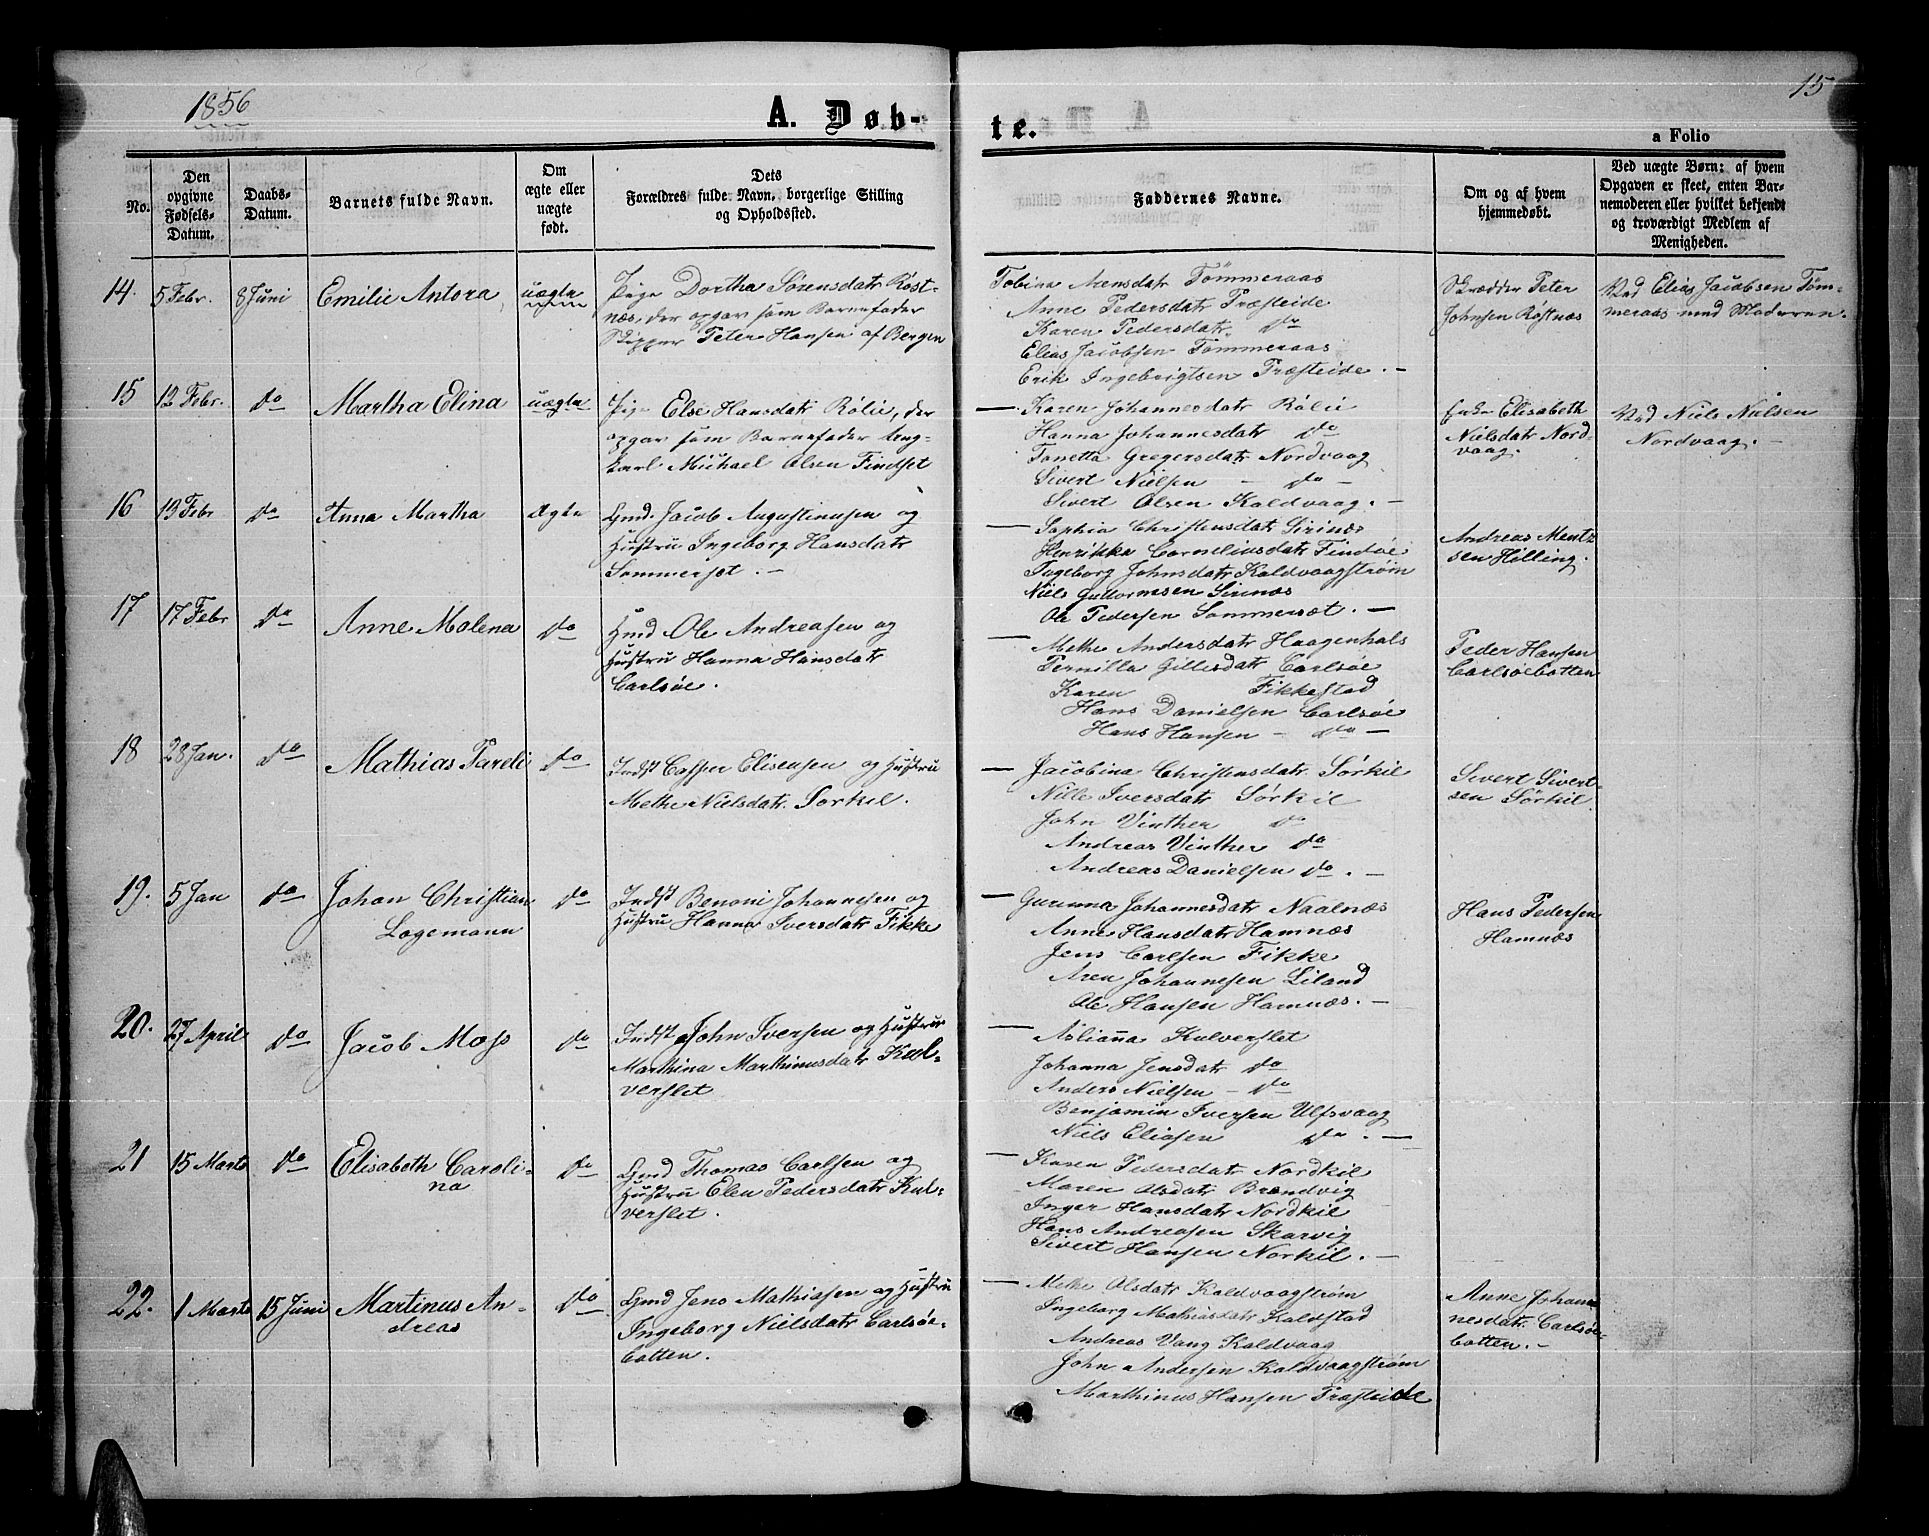 1856
15
A. Døb-
te.
a Folio
No.
Den
opgivne
Fødsels-
Datum.
Daabs-
Datum.
Barnets fulde Navn.
Om
ægte eller
uægte
født.
Dets
Forældres fulde Navn, borgerlige Stilling
og Opholdssted.
Faddernes Navne.
Om og af hvem
hjemmedøbt.
Ved uægte Børn: af hvem
Opgaven er skeet, enten Bar-
nemoderen eller hvilket bekjendt
og troværdigt Medlem af
Menigheden.
14. 5 Febr. 8 Juni Emilie Antora uægte
Pige Dorthea Sørensdatr Røst-
næs, der opgav som Barnefader
Skipper Peter Hansen af Bergen
Tobina Arensdatr Tømmeraas
Anne Pedersdatr Præsteide
Karen Pedersdatr do
Elias Jacobsen Tømmeraas
Erik Ingebrigtsen Præsteide. -
Skrædder Peter
Johnsen Røstnæs
Ved Elias Jacobsen Tøm-
meraas med Moderen.
15 12 Febr. do Martha Elina uægte
Pige Else Hansdatr Rølie, der
opgav som Barnefader Ung-
karl Michael Olsen Findset
- Karen Johannesdatr Rølie
Hanna Johannesdatr do
Tonetta Gregersdatr Nordvaag
Sivert Nielsen - do -
Sivert Olsen Kaldvaag. -
Enke Elisabeth
Nielsdatr Nord-
vaag.
Ved Niels Nielsen
Nordvaag. -
16 13 Febr do Anna Martha Ægte
Gmd. Jacob Augustinusen og
Hustru Ingeborg Hansdatr
Sommerset. -
- Sophia Christensdatr Sirinæs
Henrikka Corneliusdatr Findøe
Ingeborg Johnsdatr Kaldvaagstrøm
Niels Guttormsen Sirinæs
Ole Pedersen Sommersæt. -
Andreas Mentz
sen Hilling.
17 17 Febr do Anne Molena do
Hmd Ole Andreasen og
Hustru Hanna Hansdatr
Carlsøe.
- Methe Andersdatr Haagenhals
Pernilla Gillesdatr Carlsøe
Karen Fikkestad
Hans Danielsen Carlsøe
Hans Hansen - do -
Peder Hansen
Carlsøebotten
18 28 Jan. do Mathias Pareli do
Indst Casper Elisensen og Hustru
Methe Nielsdatr. Sørkil.
- Jacobina Christensdatr. Sørkil
Nille Iversdatr Sørkil
John Vinther do
Andreas Vinther do
Andreas Danielsen do. -
Sivert Sivert-
sen Sørkil.
19. 5 Jan do Johan Christian
Lagemann do
Indst Benoni Johannesen og
Hustru Hanna Iversdatr Fikke
- Gurinna Johannesdatr Naalnæs
Anne Hansdatr Hamnæs
Jens Carlsen Fikke
Aren Johannesen Liland
Ole Hansen Hamnæs. -
Hans Pedersen
Hamnæs
20. 27 April do Jacob Moss do
Indst John Iversen og Hustru
Marthina Marthinusdatr Kul-
verslet
- Aslianna Kulverslet
Johanna Jensdatr do
Anders Nielsen - do
Benjamin Iversen Ulfsvaag
Niels Eliasen do. -
21 15 Marts do Elisabeth Caroli-
na do
Gmd Thomas Carlsen og
Hustru Elen Pedersdatr Kul-
verslet.
- Karen Pedersdatr Nordkil
Maren Olsdatr Brendvig
Inger Hansdatr Nordkil
Hans Andreasen Skarvig
Sivert Hansen Norkil. -
22. 1 Marts 15 Juni Martinus An-
dreas do
Gmd Jens Mathiasen og Hustru
Ingeborg Nielsdatr Carlsøe-
botten.
- Methe Olsdatr Kaldvaagstrøm
Ingeborg Mathiasdatr Kaldstad
Andreas Vang Kaldvaag
John Andersen Kaldvaagstrøm
Marthinus Hansen Præsteide
Anne Johan
nesdatr. Carlsøe-
botten. -